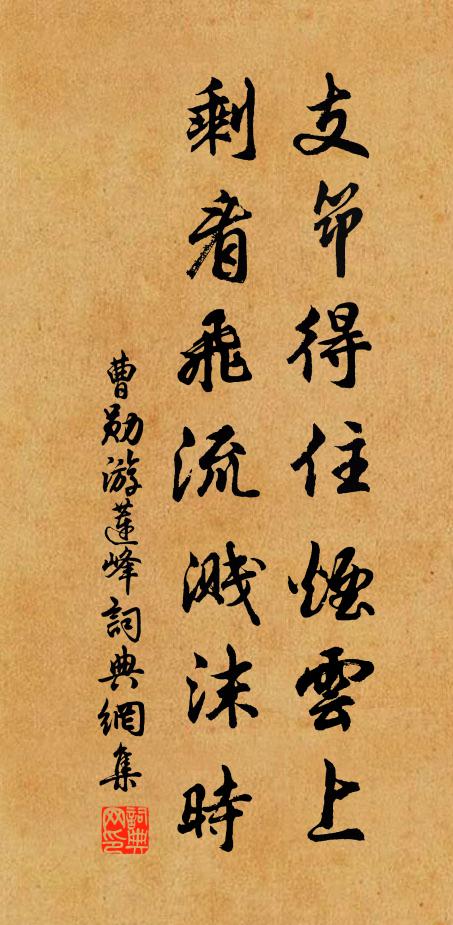 支筇得住煙雲上
剩看飛流濺沫時
曹勛游蓮峰詞典網集
詞典网印